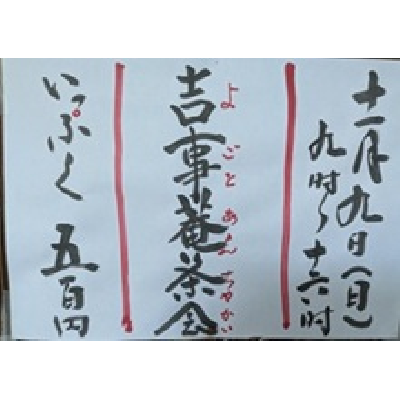 十一月九日(日)
九時〜十六時
吉事菴茶会
よごとあんちゃかい
いっぷく 五百円